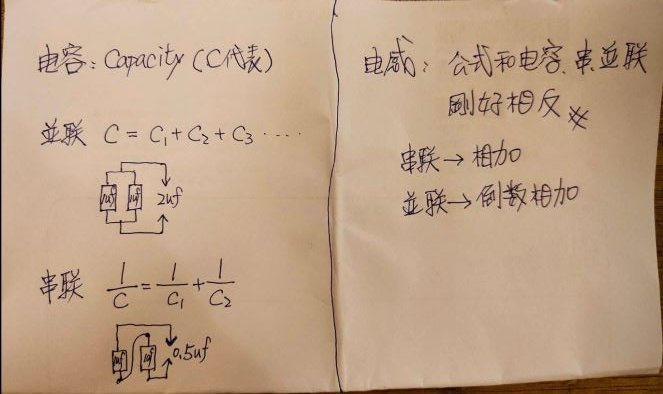 电容：Capacity（C代表）
並联 C = C₁ + C₂ + C₃ ····
1uf 1uf 2uf
串联 1/C = 1/C₁ + 1/C₂
1uf 1uf 0.5uf
电感：公式和电容、串並联
刚好相反
串联→相加
並联→倒数相加